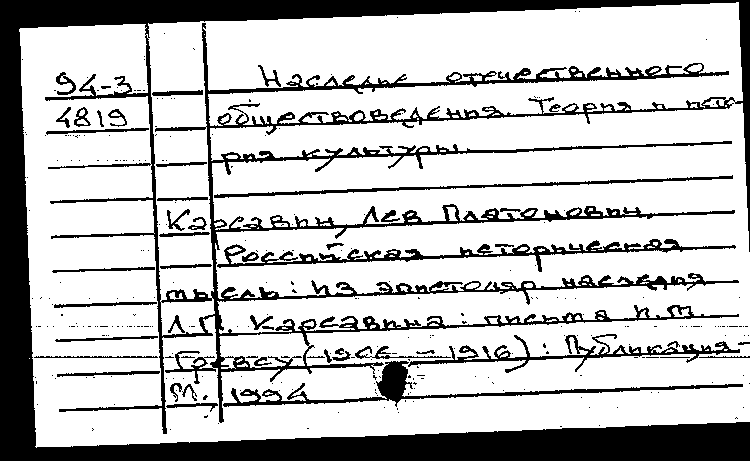 94-3 Наследие отечественного
4819 обществоведения. Теория и исто-
рия культуры.
Карсавин, Лев Платонович.
Российская историческая
мысль: Из эпистоляр. наследия
Л.П. Карсавина: письма И.М.
Гревсу (1906 - 1916): Публикация-
М., 1994